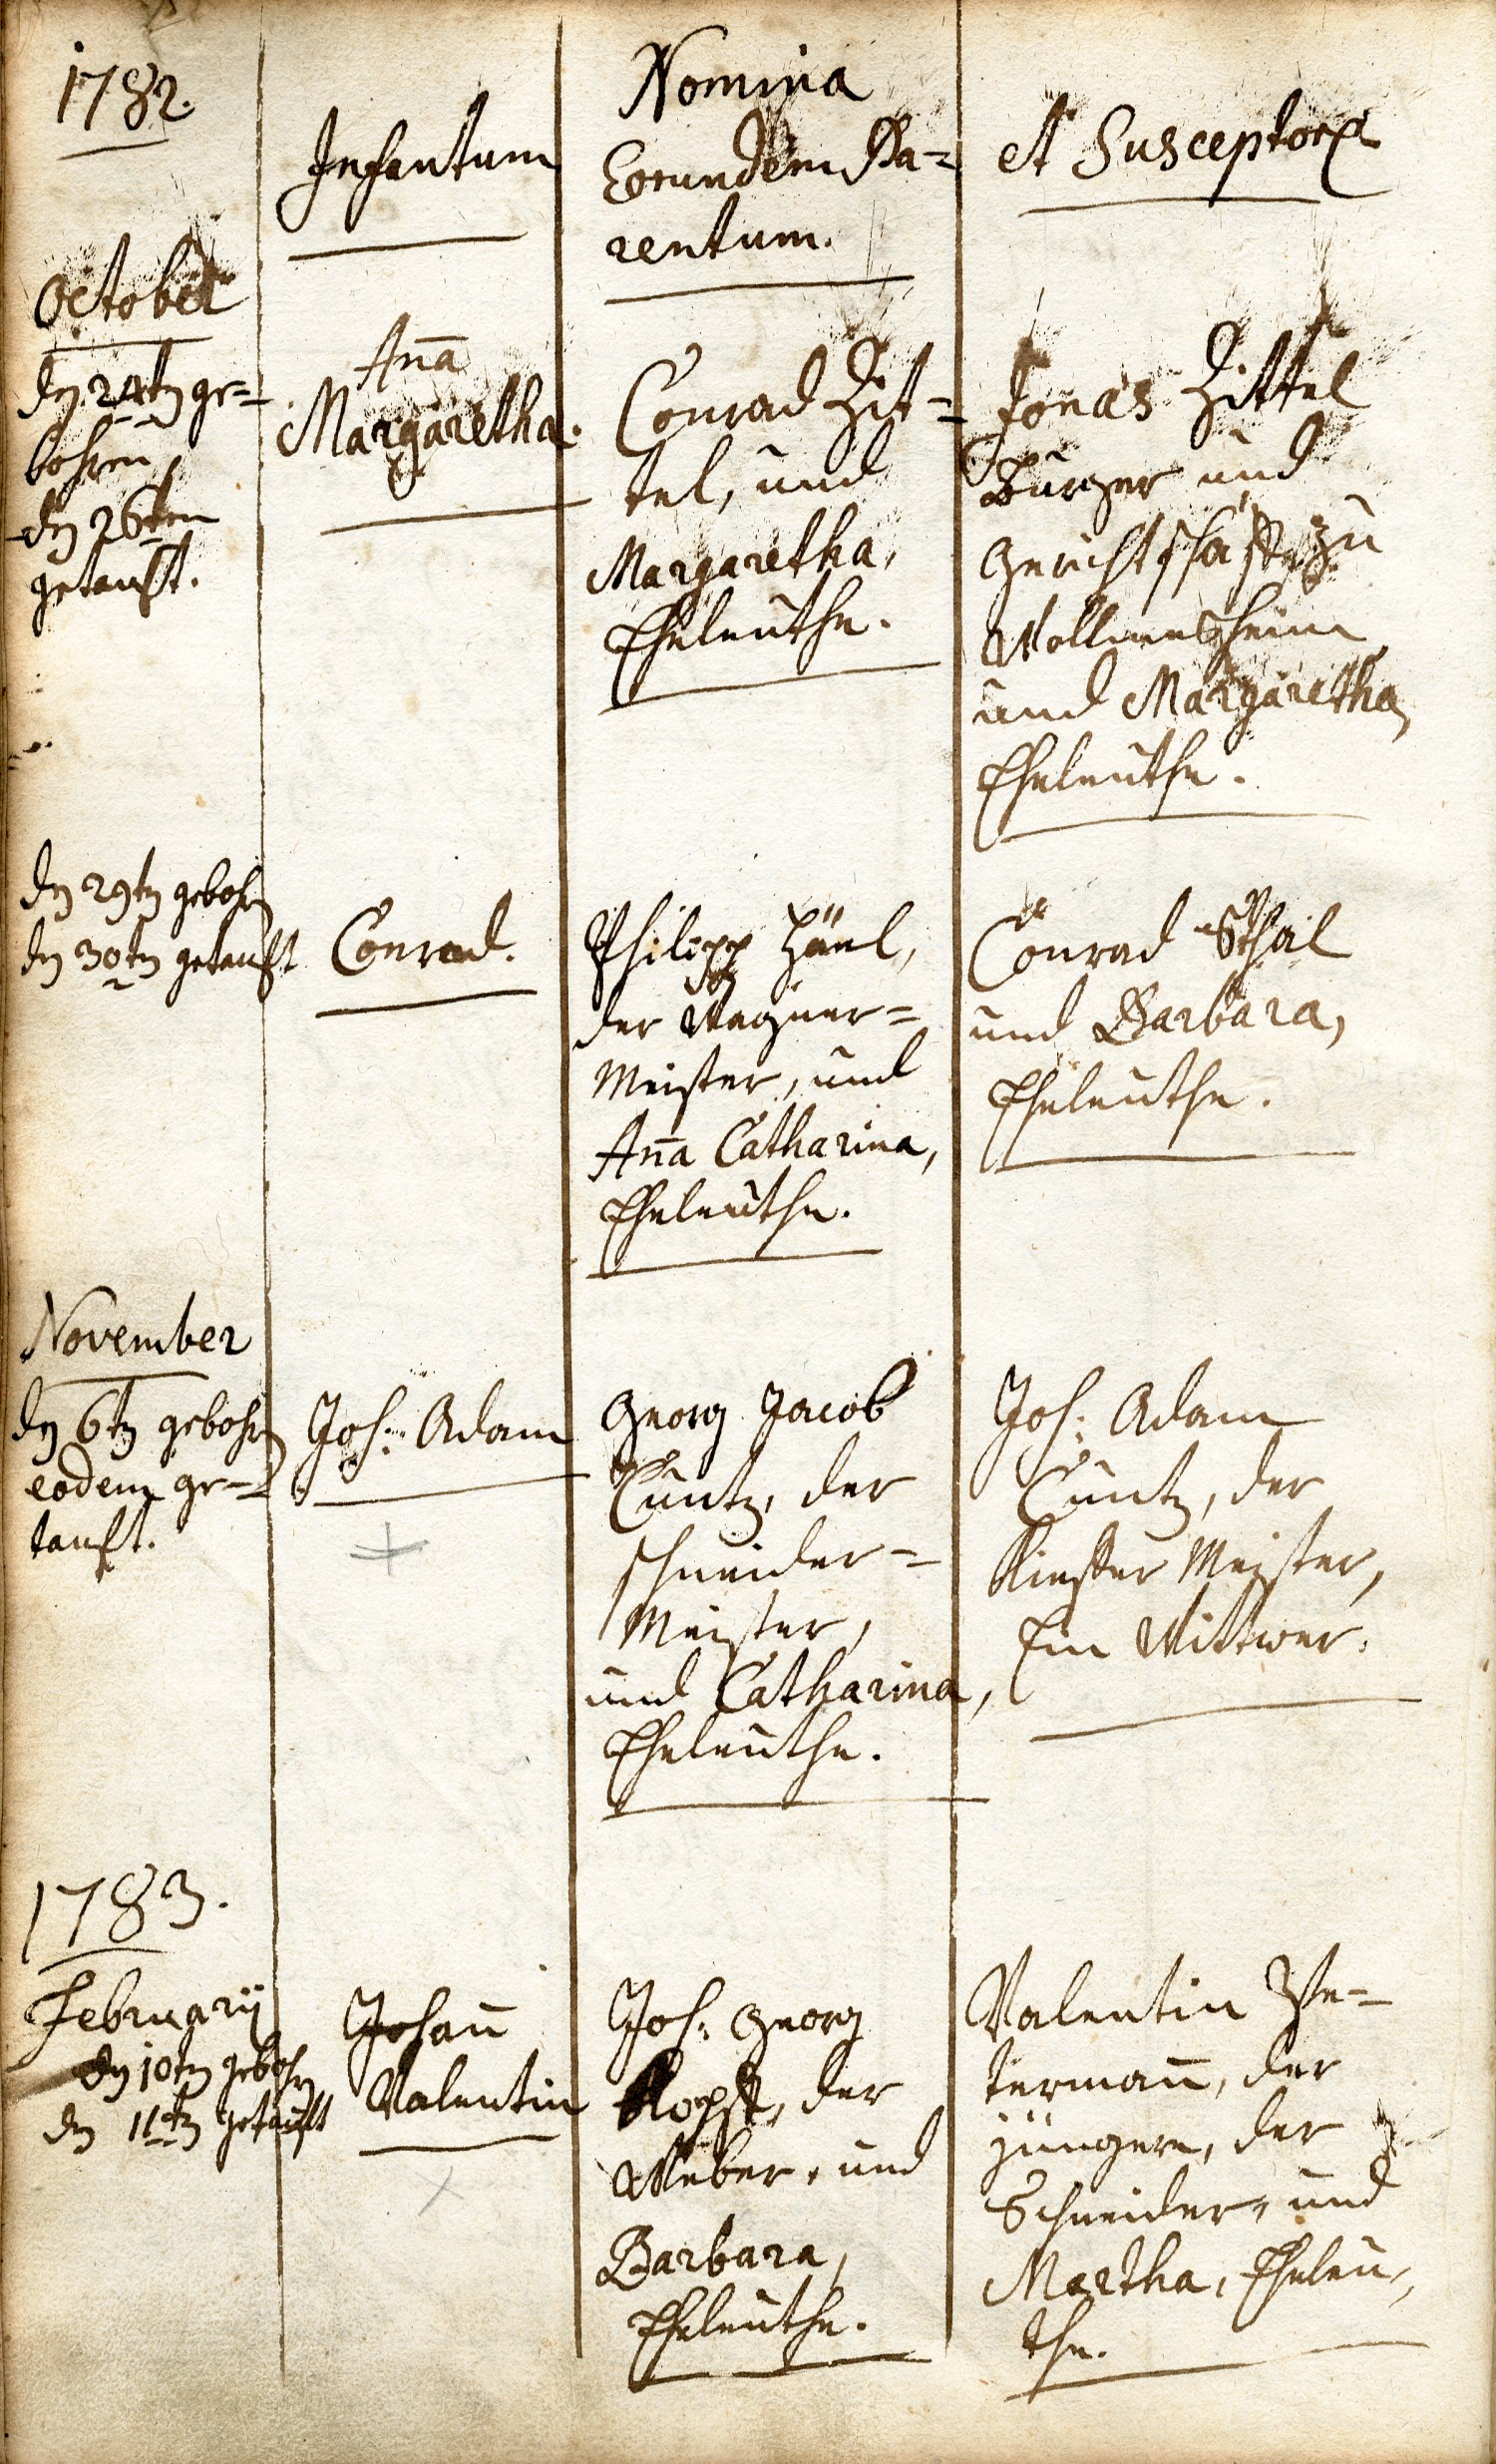 1782.
Infantum
Nomina
Eorundem Pa=
rentum.
et Susceptor
October
den 24tn ge=
bohren,
den 26ten
getauft.
Anna
Margaretha.
Conrad Zit=
tel, und
Margaretha,
Eheleuthe.
Jonas Zittel
Burger und
zu
Vollmersheim
und Margaretha,
Eheleuthe.
den 29tn gebohrn
den 30tn getauft
Conrad.
Philipp
der Wagner=
Meister, und
Anna Catharina,
Eheleuthe.
Conrad
und Barbara,
Eheleuthe.
November
den 6tn gebohrn
eodem ge=
tauft.
Joh: Adam
Georg Jacob
Cuntz, der
schneider=
Meister,
und Catharina,
Eheleuthe.
Joh: Adam
Cuntz, der
Meister,
Ein Wittwer.
1783.
Februarij
den 10tn gebohrn
den 11tn getauft
Johann
Valentin
Joh: Georg
der
Weber, und
Barbara,
Eheleuthe.
Valentin
termann, der
jüngere, der
Schneider, und
Martha, Eheleu,
the.